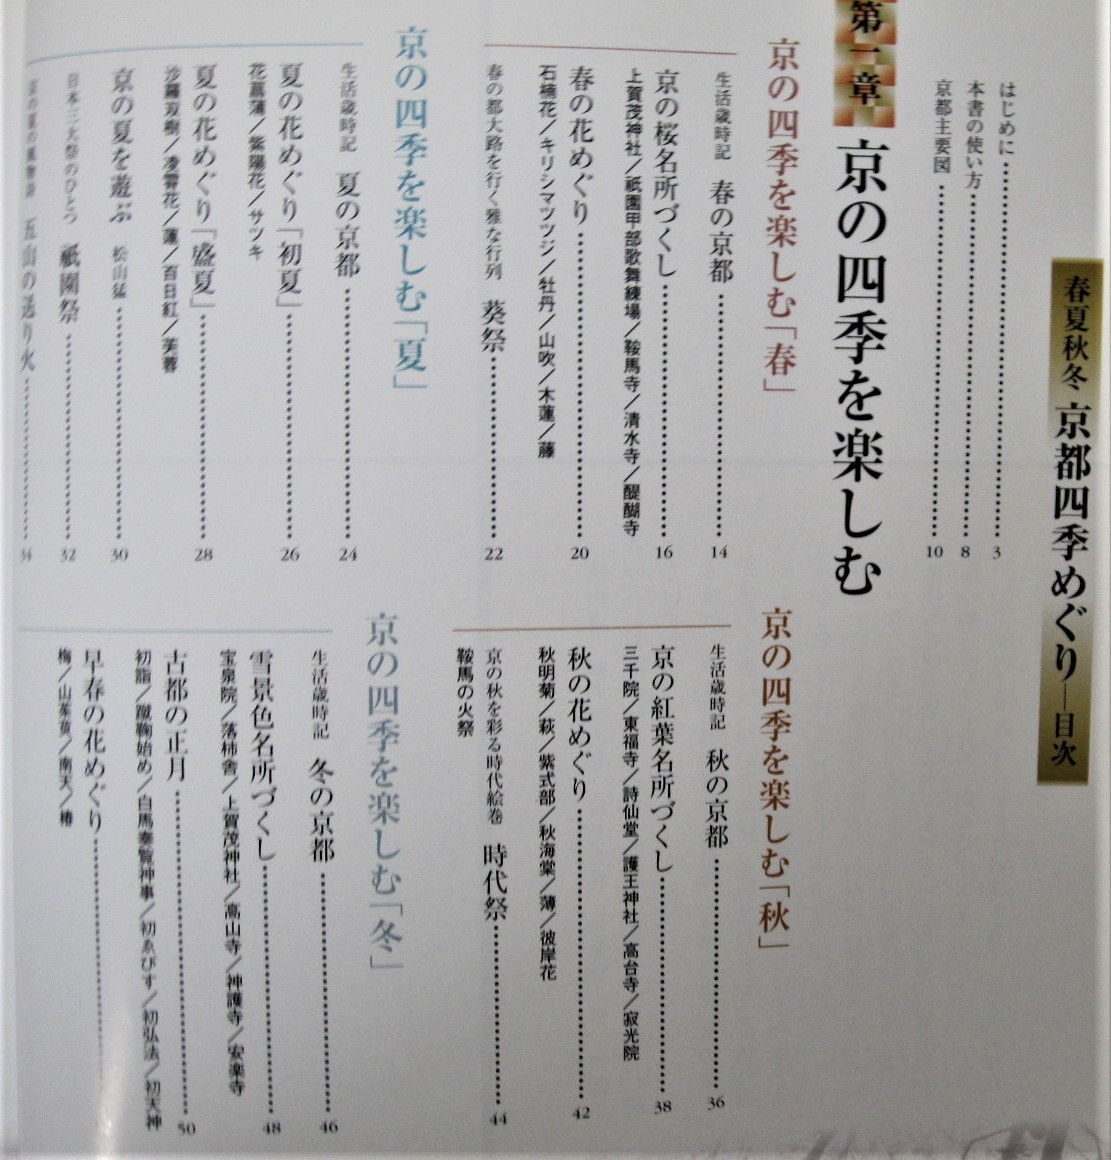 春夏秋冬 京都四季めぐり―目次
はじめに 3
本書の使い方 8
京都主要図 10
第一章 京の四季を楽しむ
京の四季を楽しむ「春」
生活歳時記 春の京都 14
京の桜名所づくし 16
上賀茂神社／祇園甲部歌舞練場／鞍馬寺／清水寺／醍醐寺
春の花めぐり 20
石楠花／キリシマツツジ／牡丹／山吹／木蓮／藤
春の都大路を行く雅な行列 葵祭 22
京の四季を楽しむ「夏」
生活歳時記 夏の京都 24
夏の花めぐり「初夏」 26
花菖蒲／紫陽花／サツキ
夏の花めぐり「盛夏」 28
沙羅双樹／凌霄花／蓮／百日紅／芙蓉
京の夏を遊ぶ 松山猛 30
日本三大祭のひとつ 祇園祭 32
五山の送り火 34
京の四季を楽しむ「秋」
生活歳時記 秋の京都 36
京の紅葉名所づくし 38
三千院／東福寺／詩仙堂／護王神社／高台寺／寂光院
秋の花めぐり 42
秋明菊／萩／紫式部／秋海棠／薄／彼岸花
京の秋を彩る時代絵巻 時代祭 44
鞍馬の火祭
京の四季を楽しむ「冬」
生活歳時記 冬の京都 46
雪景色名所づくし 48
宝泉院／落柿舎／上賀茂神社／高山寺／神護寺／安楽寺
古都の正月 50
初詣／蹴鞠始め／白馬奏覧神事／初ゑびす／初弘法／初天神
早春の花めぐり
梅／山茱萸／南天／椿